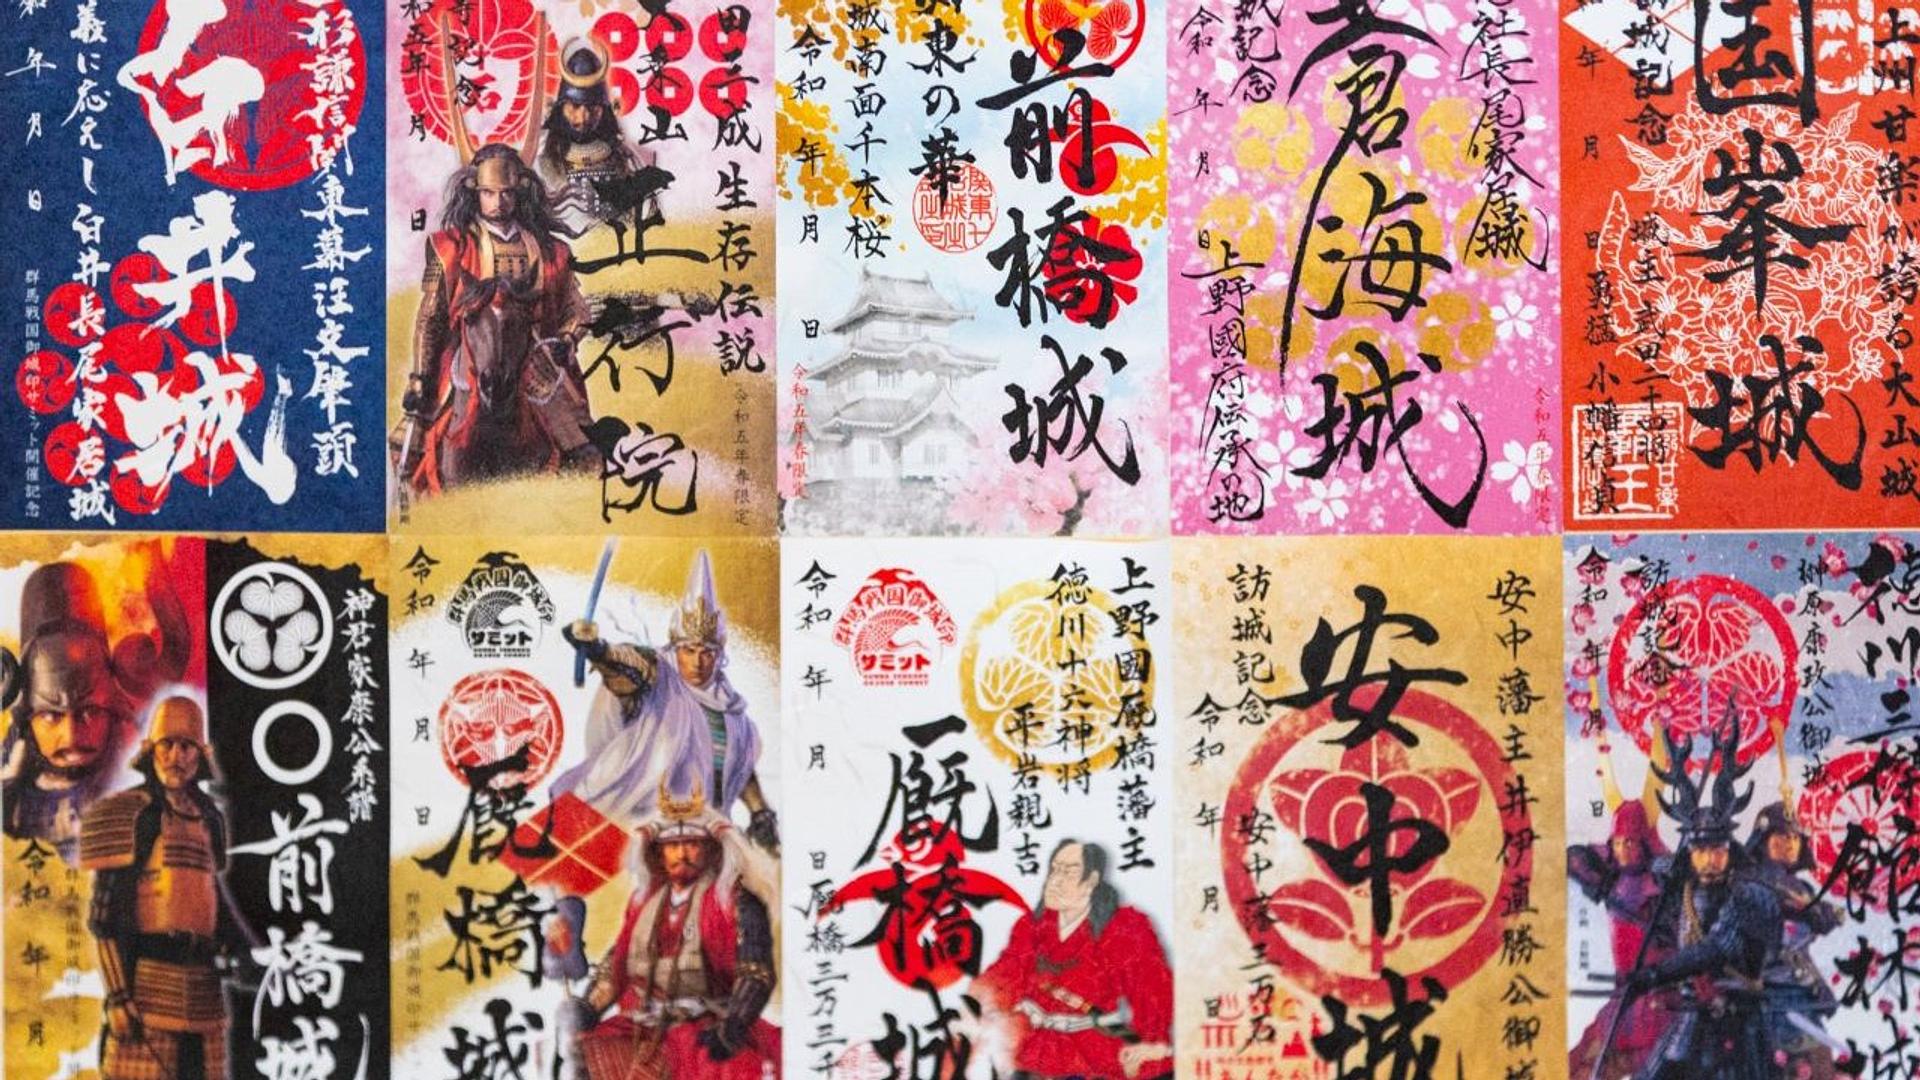 杉謙信関東幕注文筆頭
白井城
義に応えし白井長尾家居城
和 年 月 日
群馬戦国御城印サミット開催記念
田三成生存伝説
大乗山
正行院
寺記念
和五年 月 日
令和五年春限定
前橋城
東の華
城南面千本桜
令和 年 月 日
令和五年春限定
社長尾家居城
蒼海城
城記念
令和 年 月 日
上野國府伝承の地
令和五年春限定
上州甘楽が誇る大山城
国峯城
訪城記念
城主武田二十四将
年 月 日
勇猛 小幡信貞
神君家康公系譜
〇前橋城
令和 年 月 日
群馬戦国御城印サミット
厩橋城
令和 年 月 日
群馬戦国御城印
サミット
上野國厩橋藩主
徳川十六神将
平岩親吉
群馬戦国御城印
サミット
厩橋城
令和 年 月 日
厩橋三万三千
安中藩主井伊直勝公御城
安中城
訪城記念
安中藩三万石
令和 年 月 日
徳川三傑
館林城
榊原康政公御城
訪城記念
令和 年 月 日